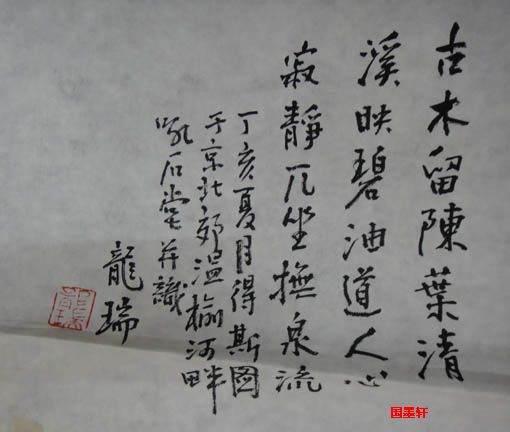 古木留陳葉清
溪映碧油道人心
寂靜兀坐撫泉流
丁亥夏月得斯圖
于京北郊溫榆河畔
石堂并識
龍瑞
国墨轩